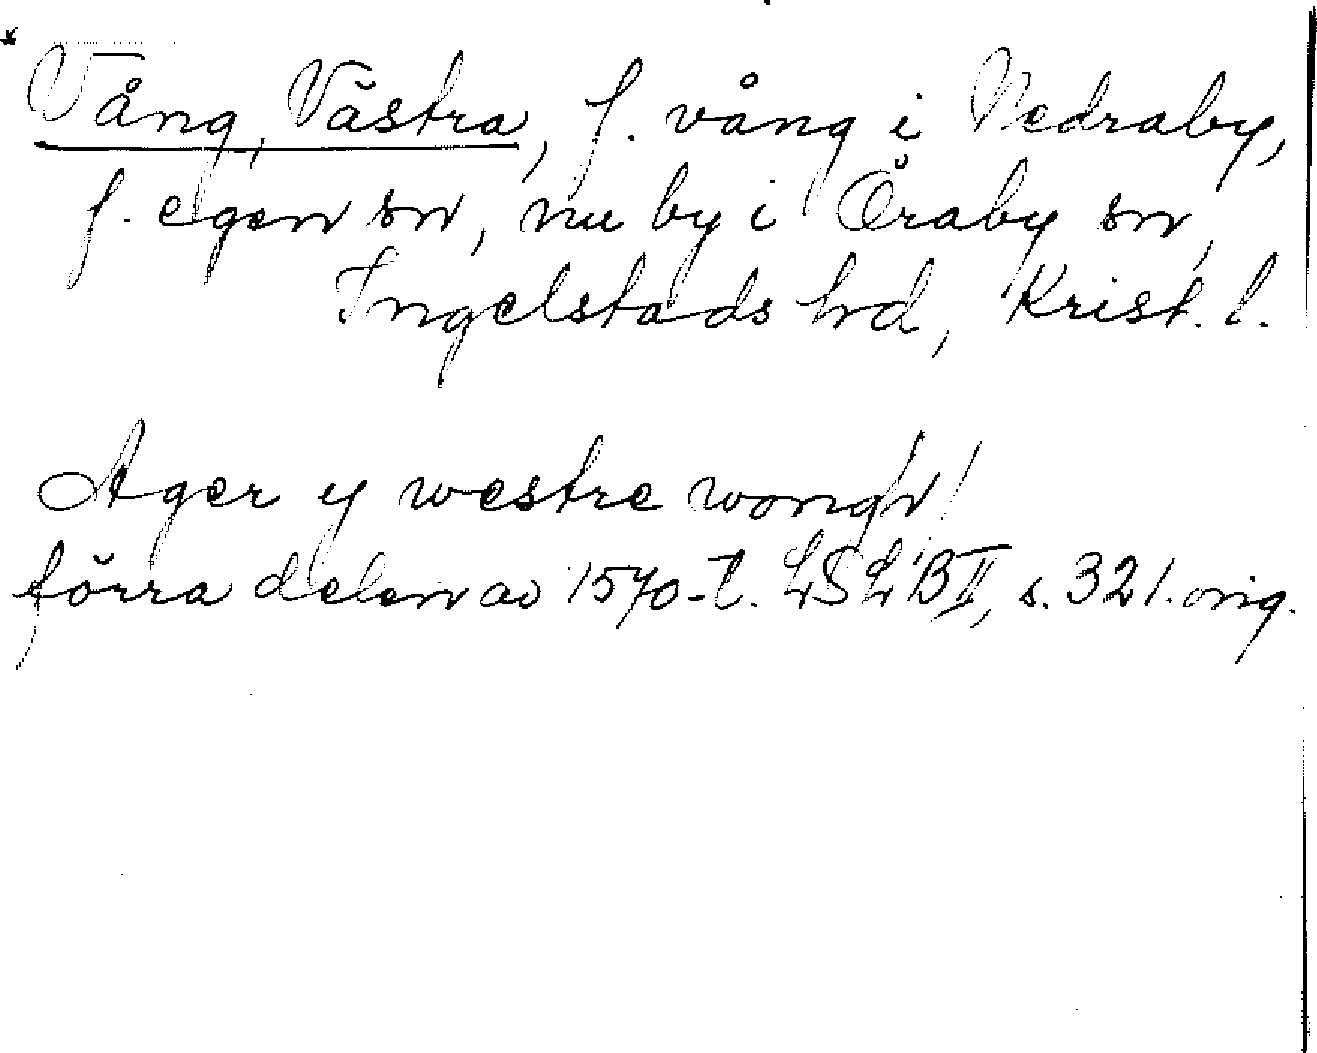 Vång, Västra, f. vång i Vedraby,
f. egen sn, nu by i Öraby sn,
Ingelstads hd, Krist. l.
Ager y westre wong/n/
förra delen av 1570-t. LSLB II, s. 321. orig.